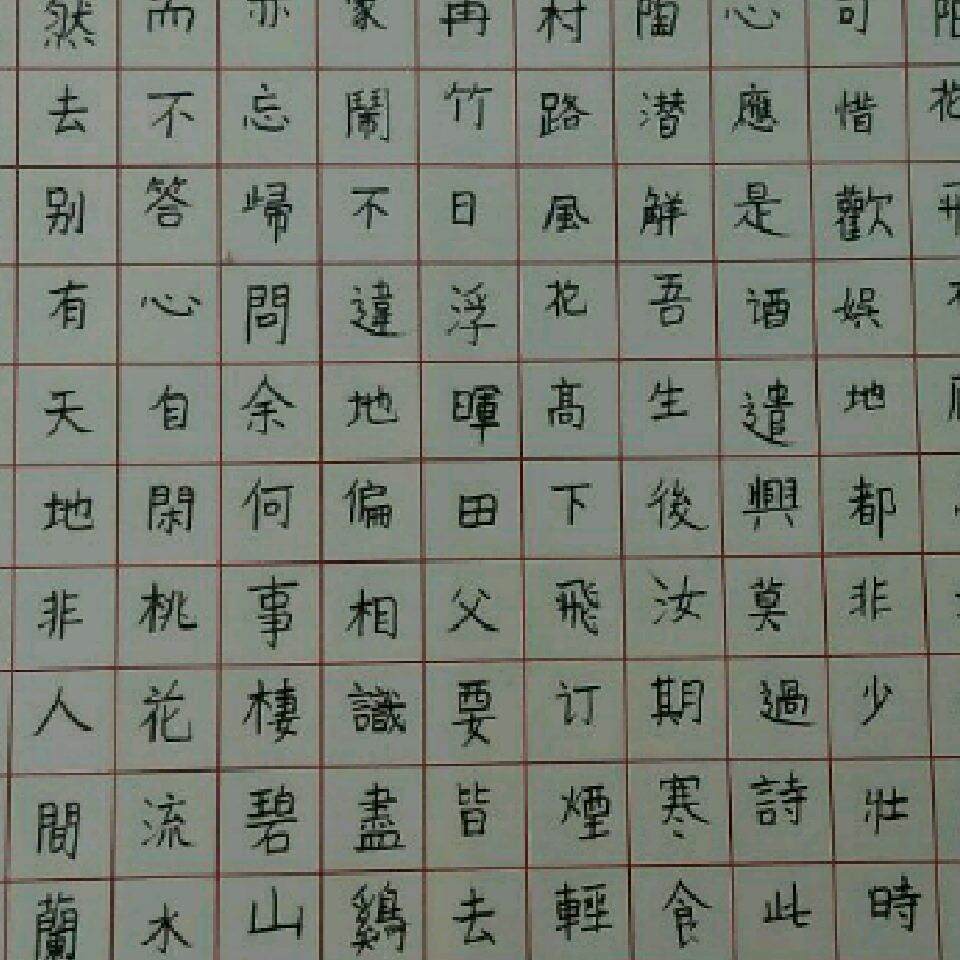 花
可惜歡娛地都非少壯時
心應是酒遣興莫過詩此
陶潛解吾生後汝期寒食
村路風花高下飛汀煙輕
冉竹日浮暉田父要皆去
家鬧不違地偏相識盡鷄
亦忘歸問余何事棲碧山
而不答心自閑桃花流水
然去别有天地非人間蘭